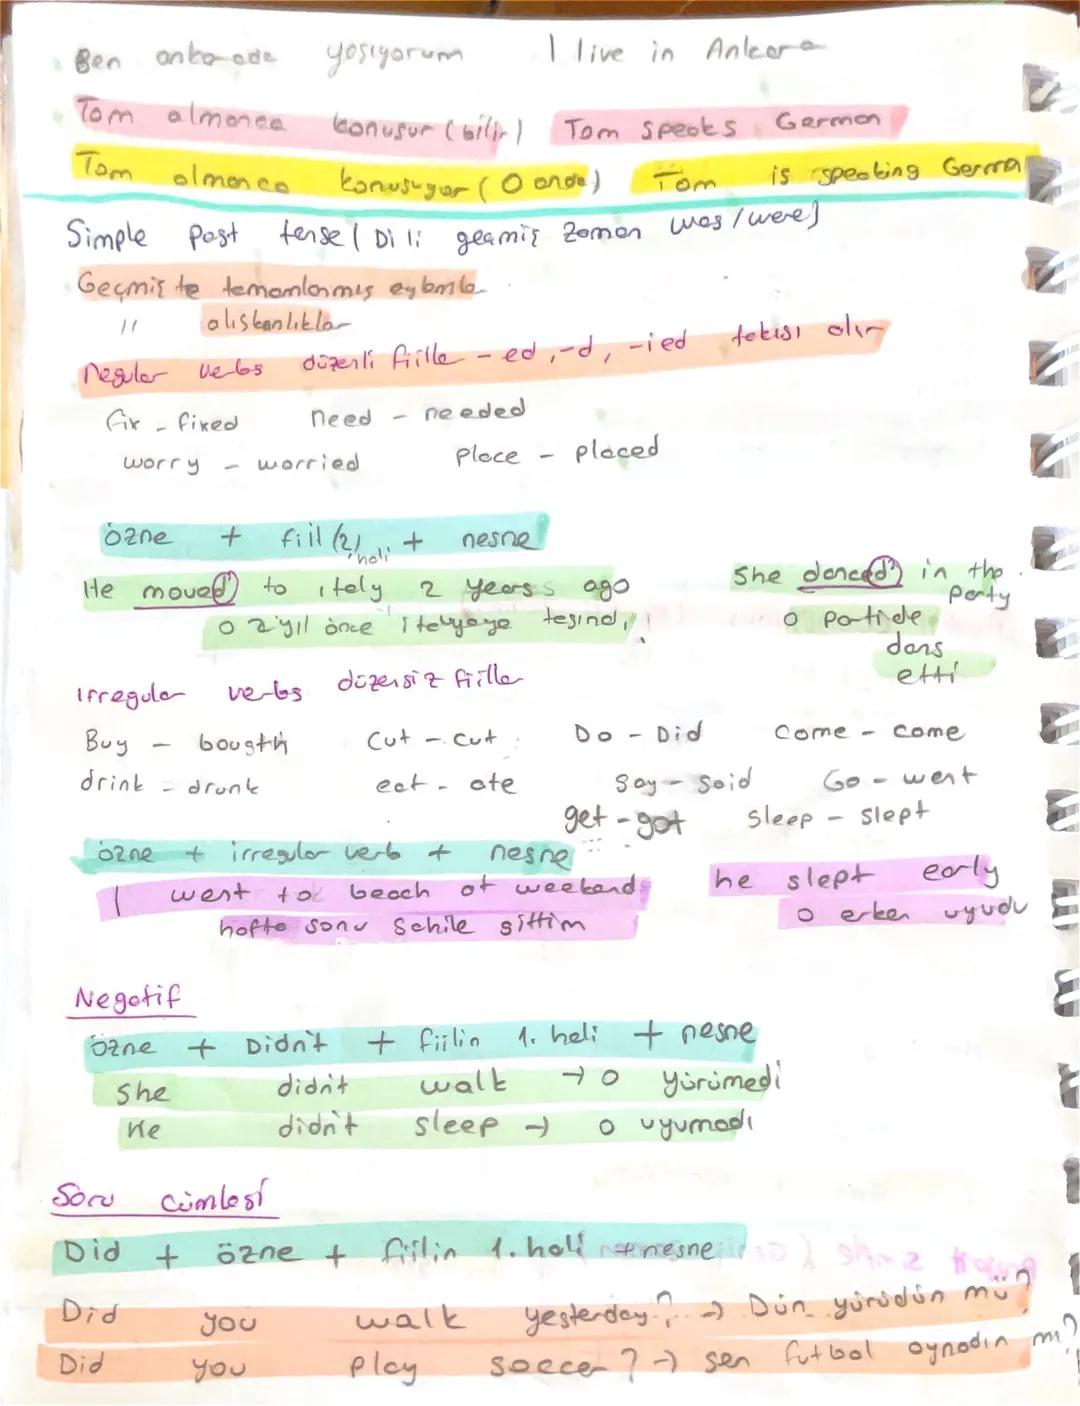 Ben ankarada yaşıyorum I live in Ankara
Tom almanca konuşur (bilir) Tom speaks German
Tom almanca konuşuyor (O anda) Tom is speaking German
Simple past tense ( Di li geçmiş zaman was / were )
Geçmiş te tamamlanmış eylemler
" alışkanlıklar
Regular verbs düzenli fiiller -ed, -d, -ied takısı alır
fix - fixed need - needed
worry - worried place - placed
özne + fiil (2) hali + nesne
He moved to italy 2 years ago
She danced in the party
o 2 yıl önce italyaya taşındı
o partide dans etti
Irregular verbs düzensiz fiiller
Buy - bougth Cut - Cut Do - Did Come - come
drink - drunk eat - ate Say - Said Go - went
get - got Sleep - Slept
özne + irregular verb + nesne
I went to beach at weekend
he slept early
hafta sonu Sahile gittim
o erken uyudu
Negatif
özne + Didn't + fiilin 1. hali + nesne
She didn't walk → o yürümedi
He didn't sleep → o uyumadı
Soru Cümlesi
Did + özne + fiilin 1. hali + nesne
Did you walk yesterday? → Dün yürüdün mü?
Did you play soccer? → sen futbol oynadın mı?